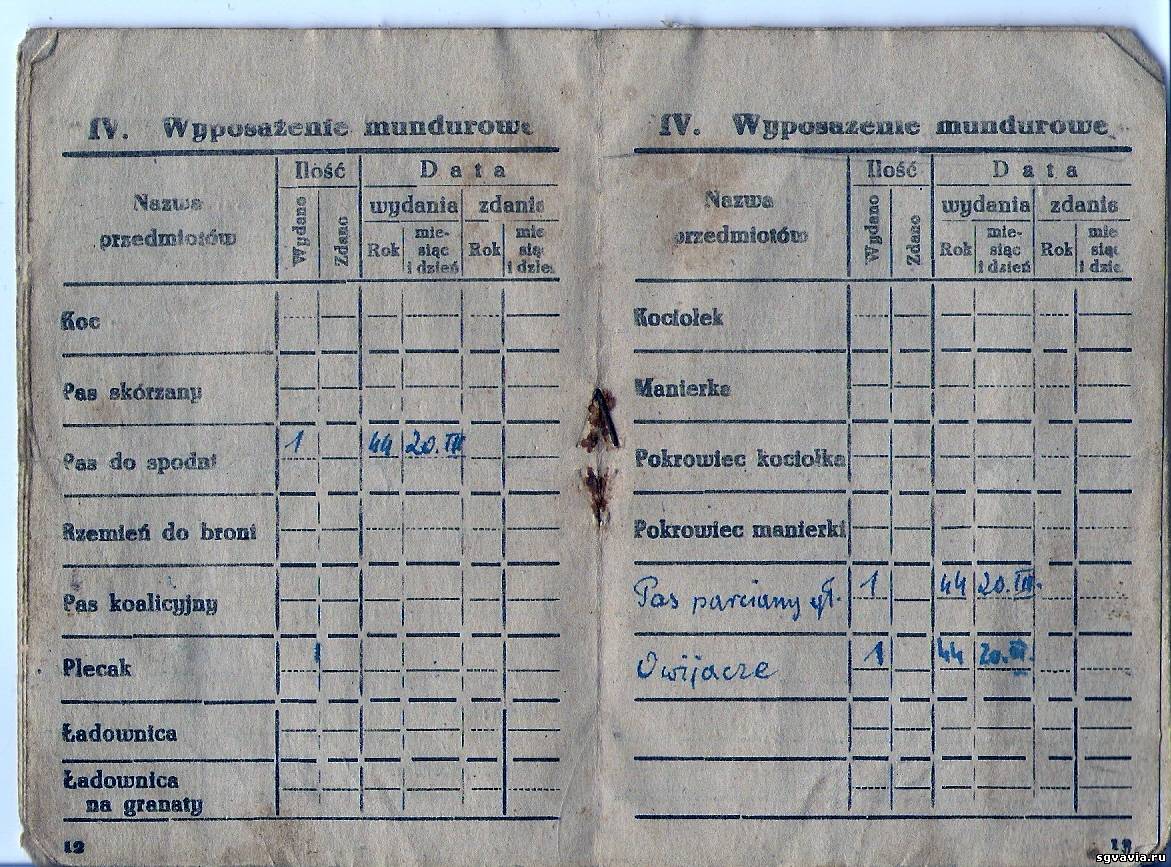 IV. Wyposażenie mundurowe
Nazwa przedmiotów
Ilość
Wydano
Zdano
Data
wydania
zdania
Rok
mie-
siąc
i dzień
Rok
mie
sią
i dzie
Koc
Pas skórzany
Pas do spodni 1 44 20.III
Rzemień do broni
Pas koalicyjny
Plecak 1
Ładownica
Ładownica
na granaty
12
IV. Wyposażenie mundurowe
Nazwa
przedmiotów
Ilość
Wydano
Zdano
Data
wydania
zdania
Rok
mie-
siąc
i dzień
Rok
mie
sią
i dzie
Kociołek
Manierka
Pokrowiec kociołka
Pokrowiec manierki
Pas parciany 1 44 20.III.
Owijacze 1 44 20.III.
sgvavia.ru